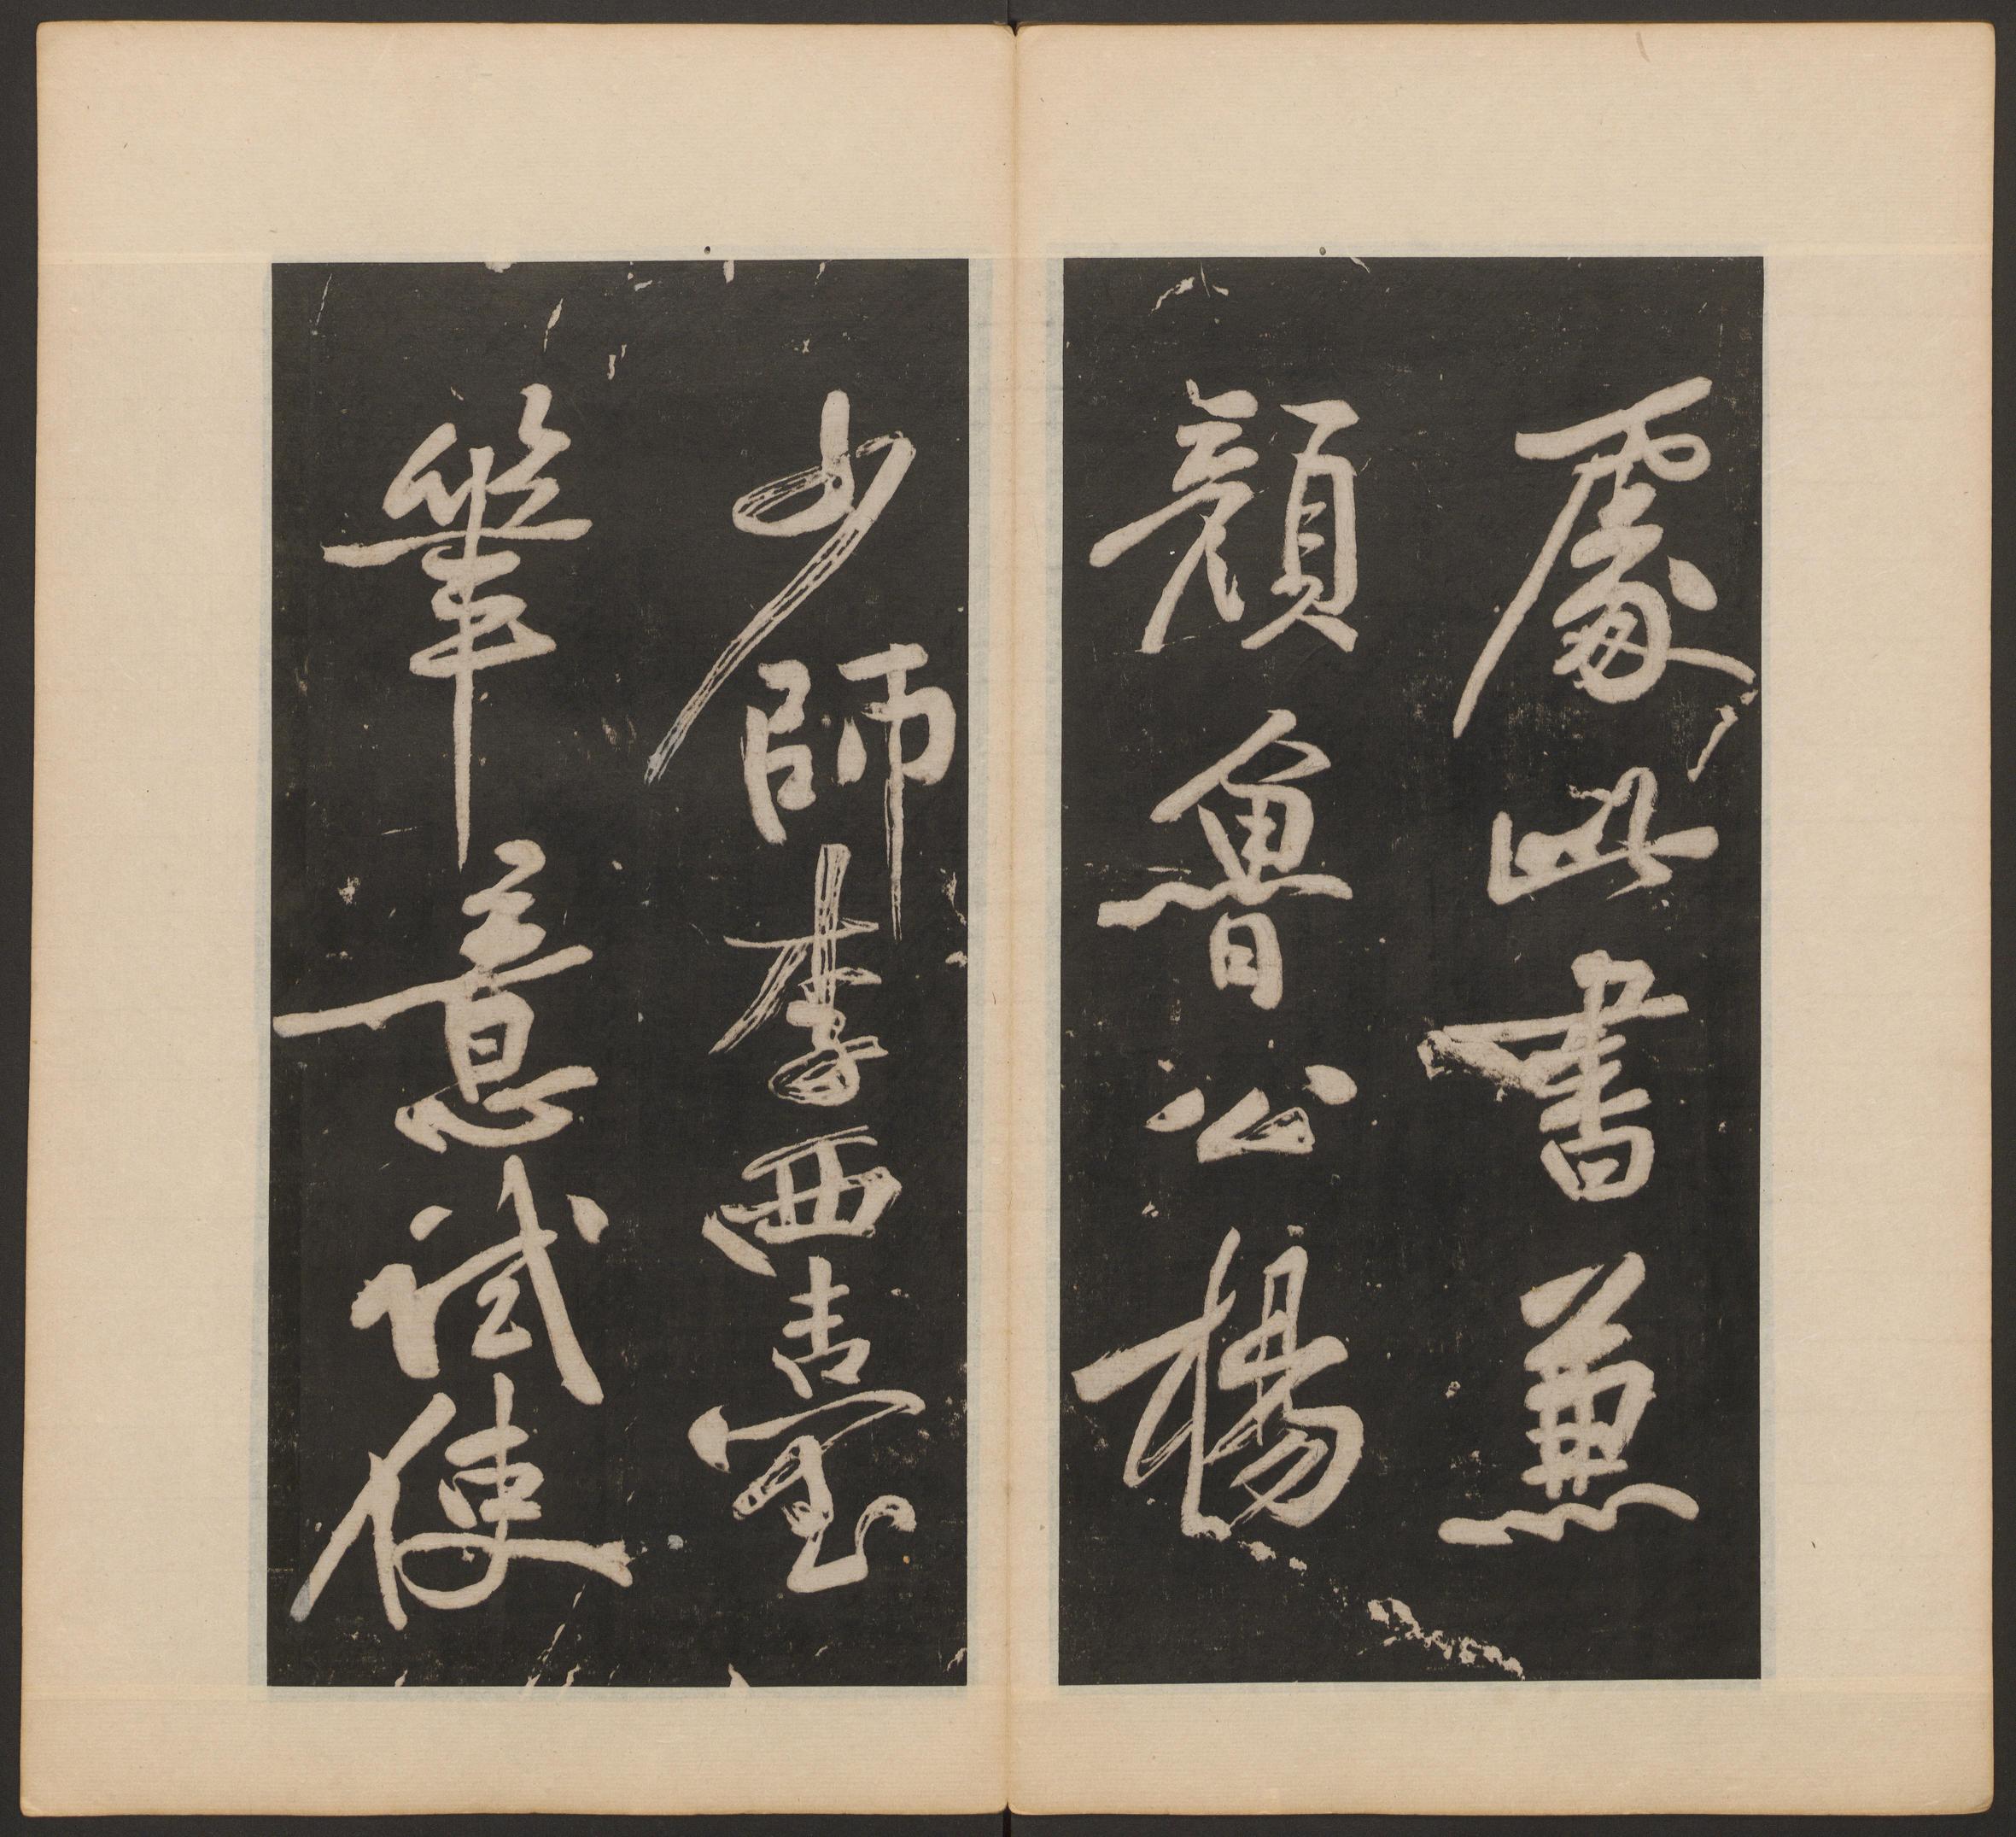 處此書兼
顏魯公楊
少師李西臺
筆意試使